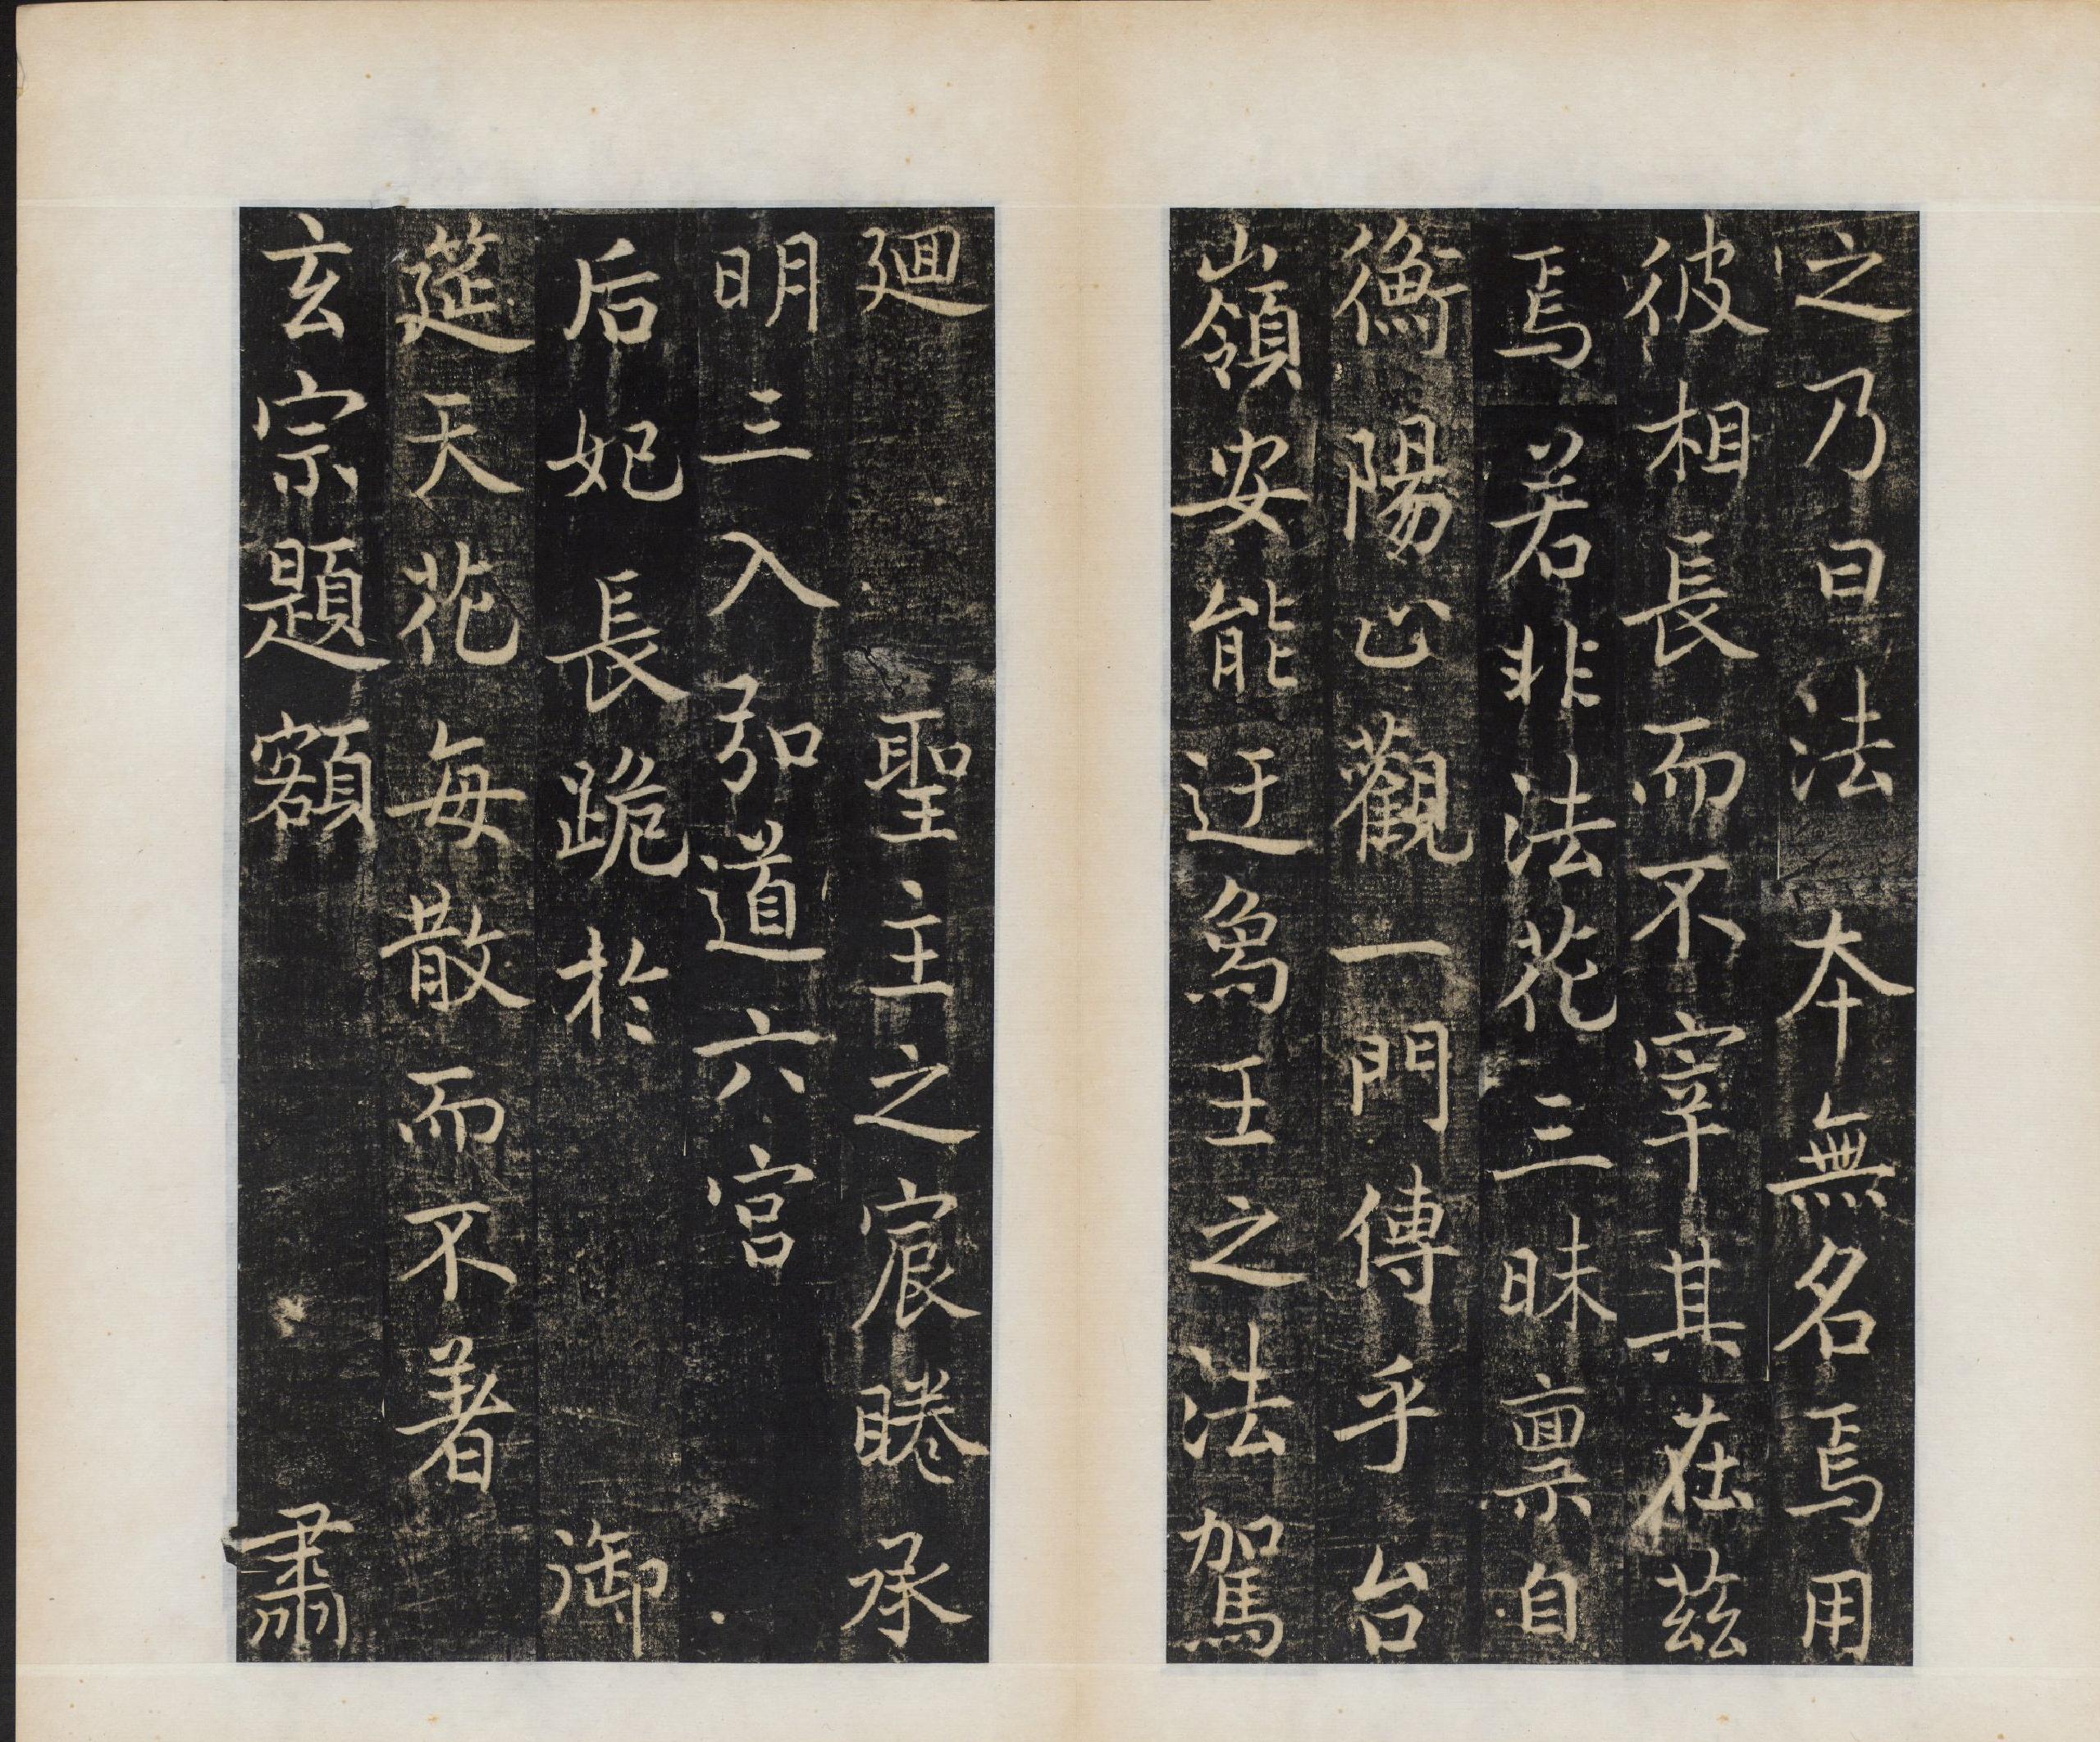 之乃曰法本無名焉用
彼相長而不宰其在茲
焉若非法花三昧禀自
衡陽止觀一門傳乎台
山嶺安能迂鳥王之法駕
迴聖主之宸睠承
明三入弘道六宮
后妃長跪於御
筵天花每散而不著
玄宗題額肅